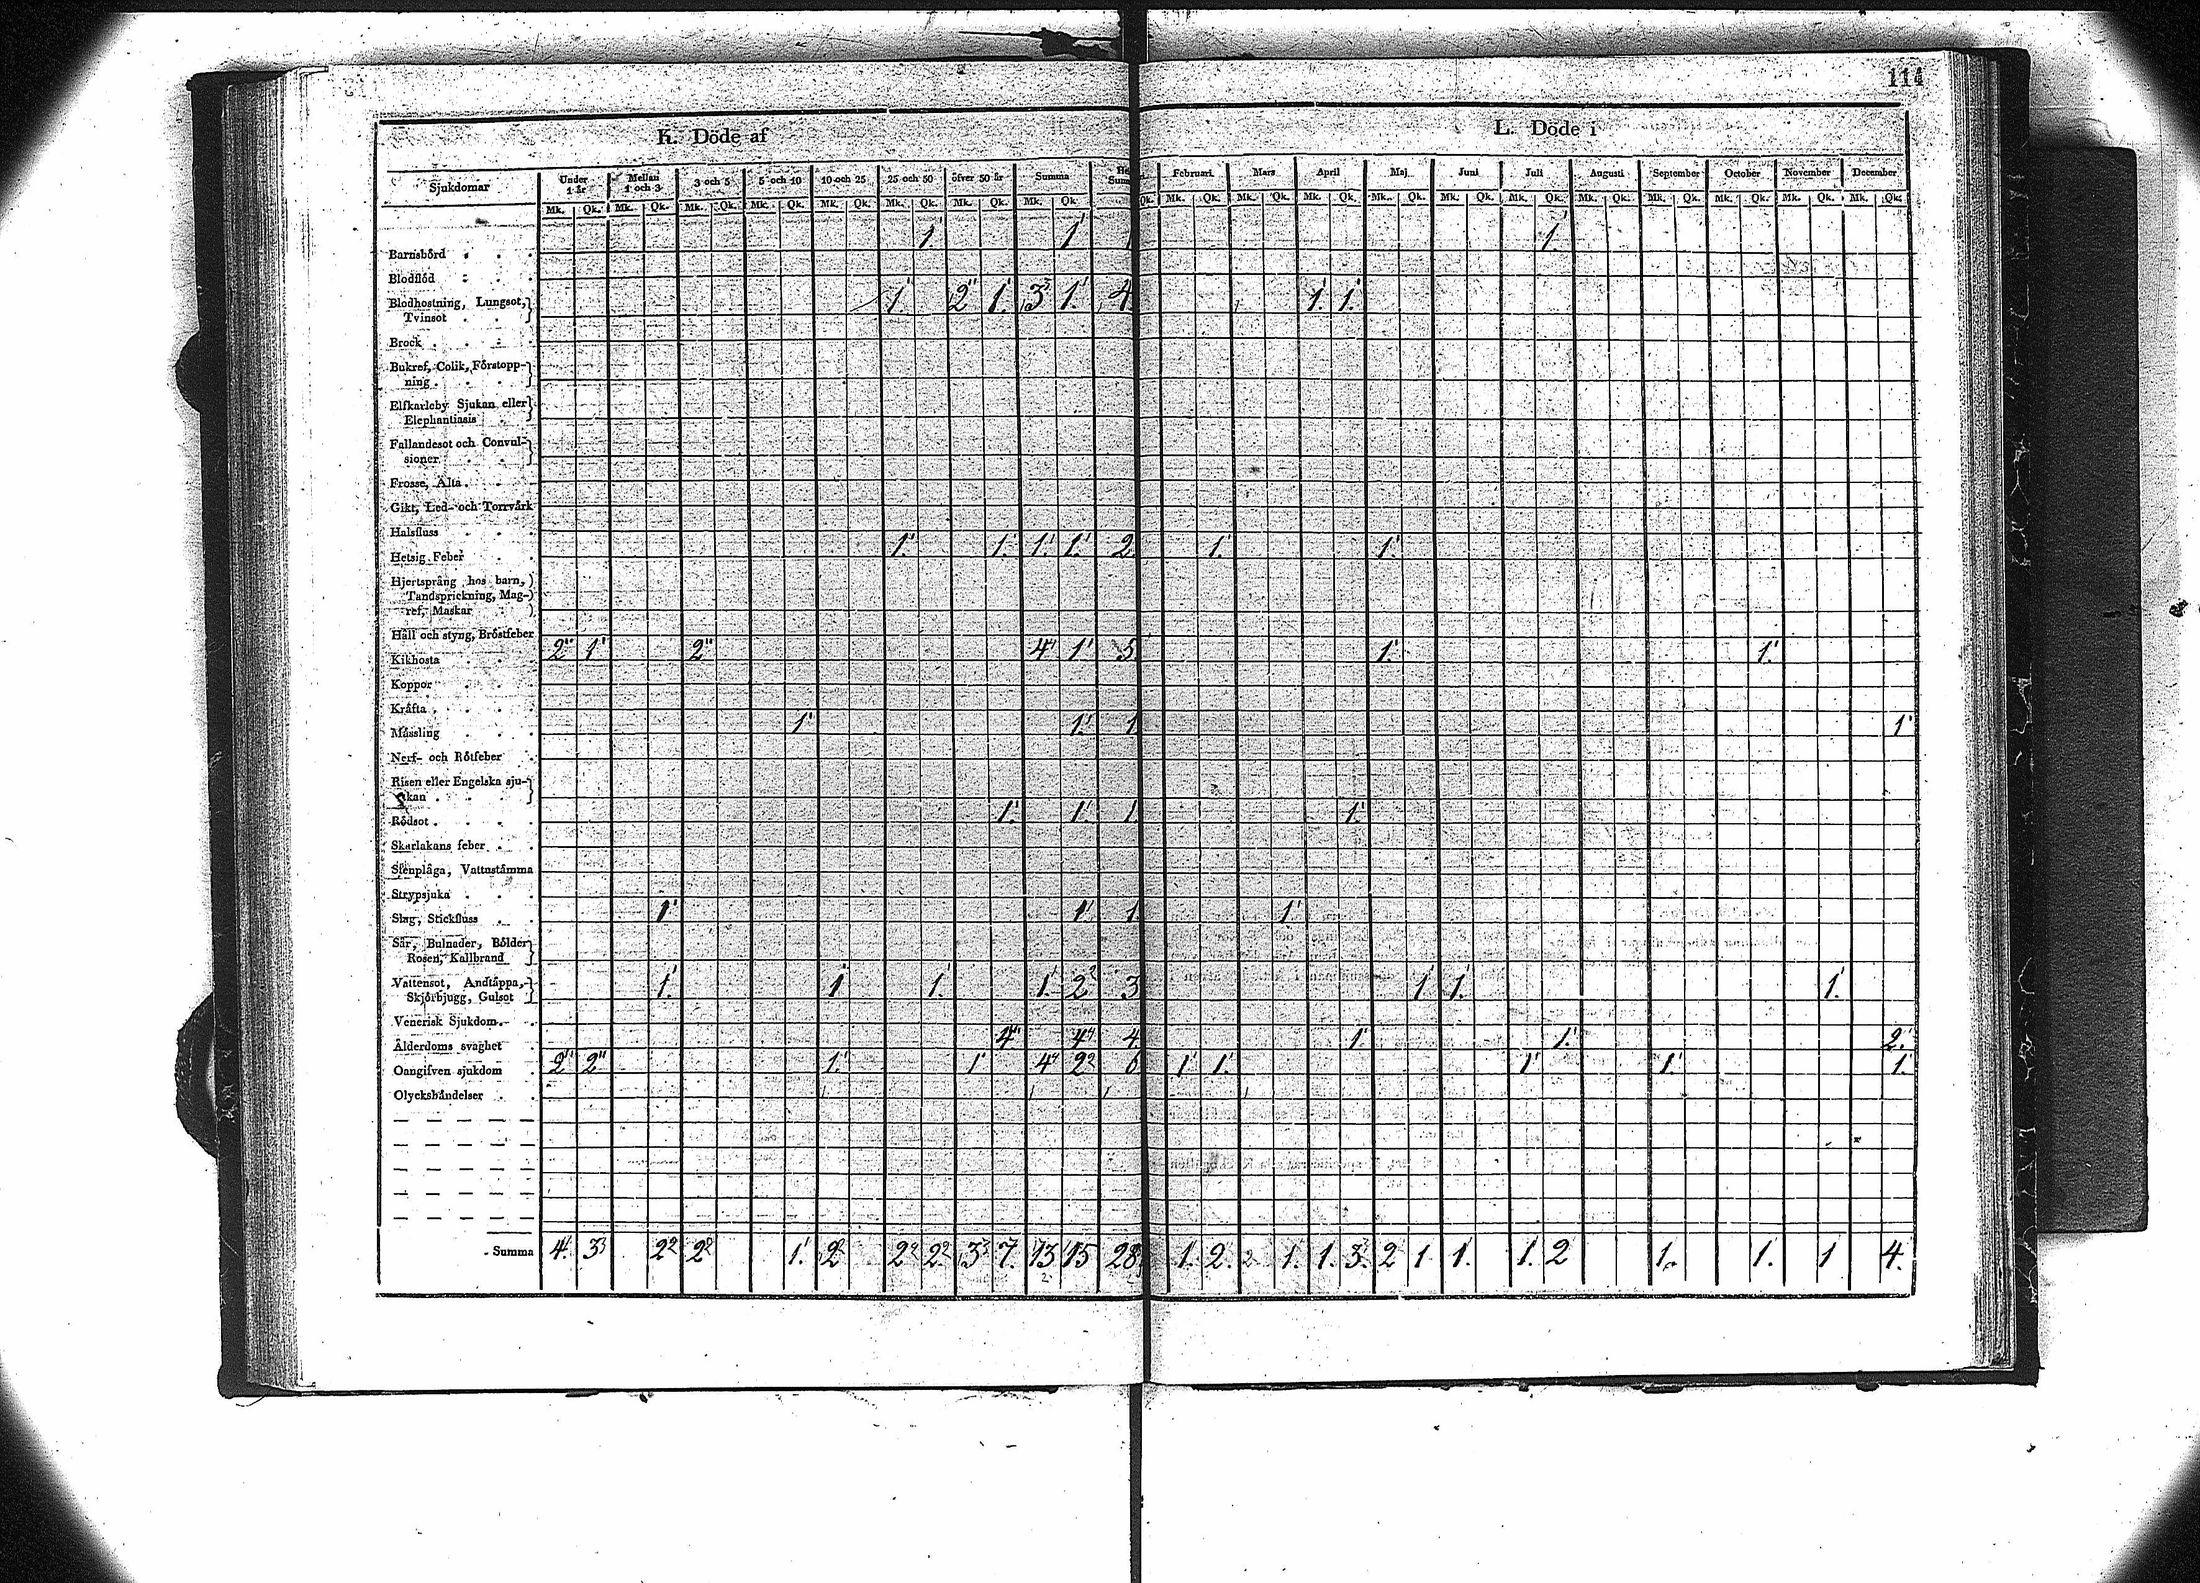 114
K. Döde af L. Döde i
Sjukdomar Under 1 år Mellan 1 och 3 3 och 5 5 och 10 10 och 25 25 och 50 öfver 50 år Summa Februari Mars April Maj Juni Juli Augusti September October November December
Mk. Qk. Mk. Qk. Mk. Qk. Mk. Qk. Mk. Qk. Mk. Qk. Mk. Qk. Mk. Qk. Qk. Mk. Qk. Mk. Qk. Mk. Qk. Mk. Qk. Mk. Qk. Mk. Qk. Mk. Qk. Mk. Qk. Mk. Qk. Mk. Qk. Mk. Qk.
Barnsbörd 1 1 1 1.
Blodflöd
Blodhostning, Lungsot,
Tvinsot 1. 2 1. 3 1. 4 1. 1.
Brock
Bukref, Colik, Förstopp-
ning
Elfkarleby Sjukan eller
Elephantiasis
Fallandesot och Convul-
sioner
Frosse, Älta
Gikt, Led- och Torrvärk
Halsfluss
Hetsig Feber 1. 1. 1. 1. 2 1. 1.
Hjertsprång hos barn,
Tandsprickning, Mag-
ref, Maskar
Håll och styng, Bröstfeber
Kikhosta 2 1 2 4 1 5 1. 1.
Koppor
Kräfta
Mässling 1 1. 1 1
Nerf- och Rötfeber
Risen eller Engelska sju-
kan
Rödsot 1. 1. 1. 1.
Skarlakans feber
Stenplåga, Vattustämma
Strypsjuka
Slag, Stickfluss 1 1 1 1
Sår, Bulnader, Bölder
Rosen, Kallbrand
Vattensot, Andtäppa,
Skjörbjugg, Gulsot 1. 1 1. 1. 2 3 1 1. 1.
Venerisk Sjukdom
Ålderdoms svaghet 4 4 4 1. 1. 2.
Oangifven sjukdom 2 2 1. 1 4 2 6 1 1. 1 1. 1.
Olyckshändelser
Summa 4. 3 2 2 1. 2 2 2. 3 7. 13 15 28 1. 2. 2 1. 1. 3. 2 1 1. 1. 2 1. 1. 1 4.